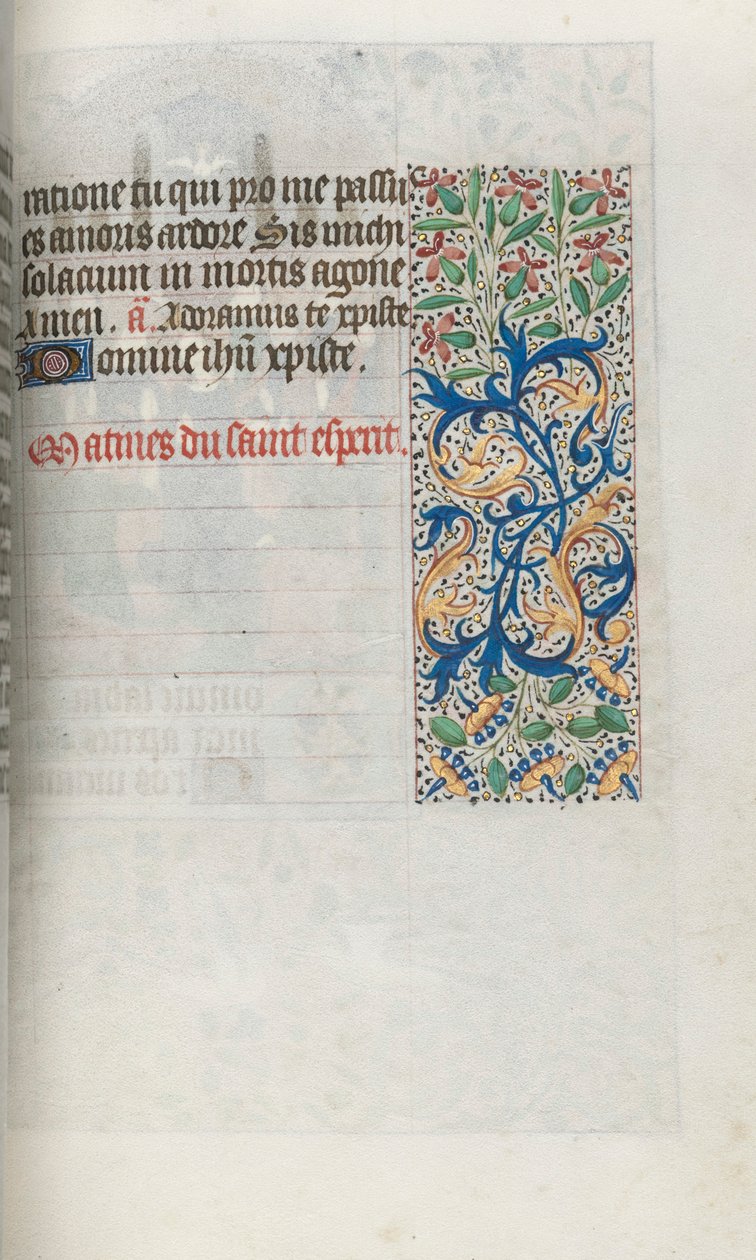 ratione tu qui pro me passu
es amoris ardore Sis michi
solacium in mortis agone
Amen. ā. Adoramus te xpiste.
Domine ihū xpiste.
Matines du saint esperit.